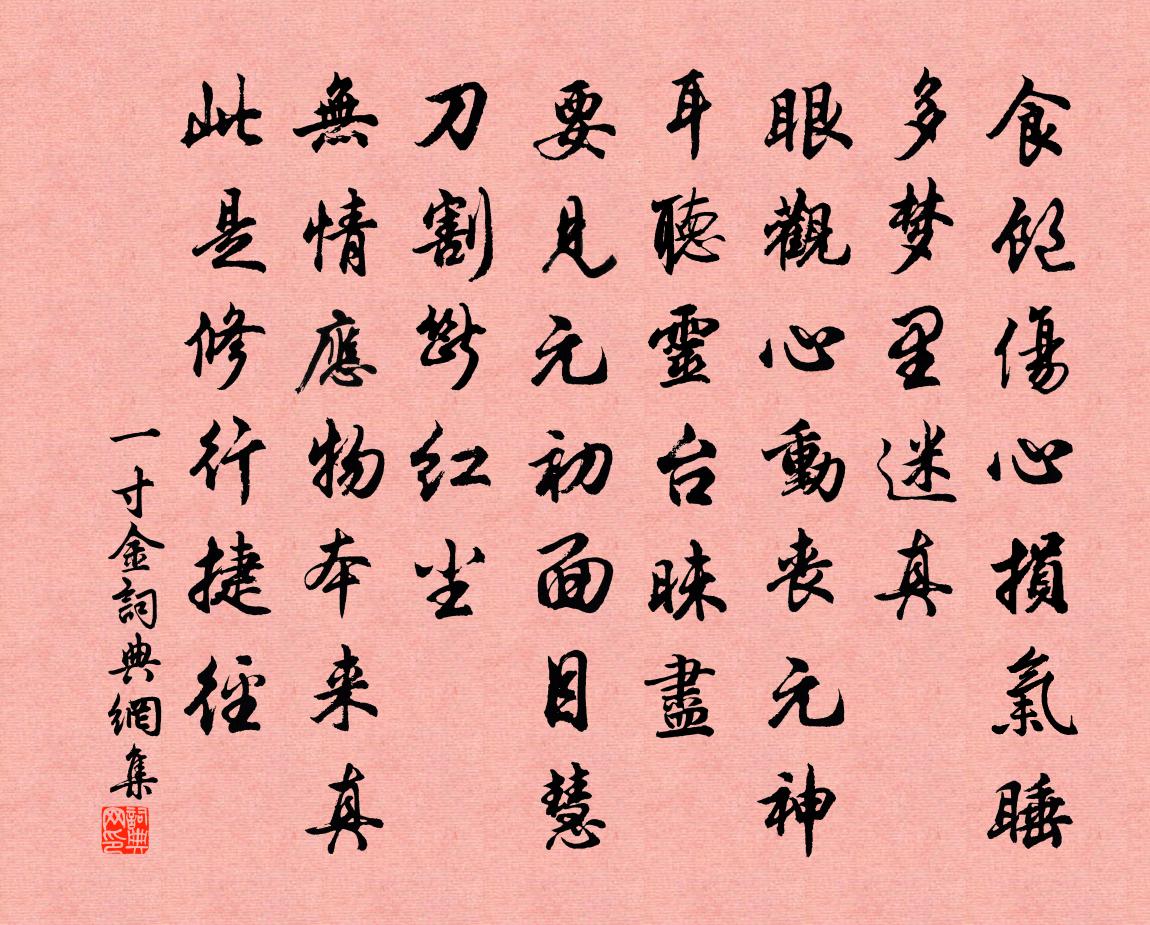 食飽傷心損氣睡
多梦里迷真
眼觀心動丧元神
耳聽靈台昧盡
要見元初面目慧
刀割斷红尘
無情應物本来真
此是修行捷徑
一寸金詞典網集
詞典网印